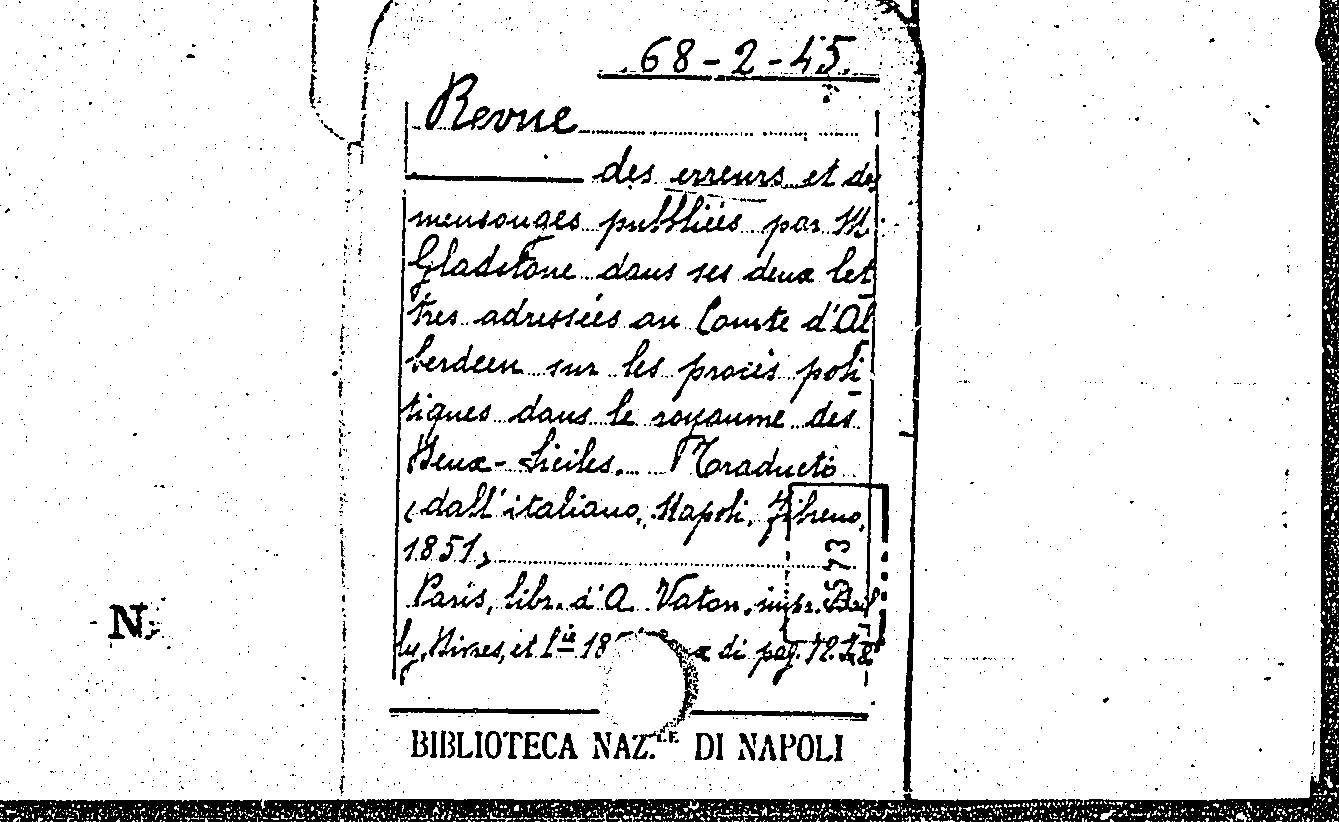 68-2-45.
Revue
des erreurs et des
mensonges pubbliées par M.
Gladstone dans ses deux let
tres adressées au Comte d'Al
berdeen sur les procès poli
tiques dans le royaume des
Deux-Siciles. Traducto
dall'italiano, Napoli, Fibreno,
1851,
573
Paris, libr. d'A. Vaton, impr. Bail
ly, Divres, et C.ie 18 di pag. 72. In 8°
N.
BIBLIOTECA NAZ.LE DI NAPOLI